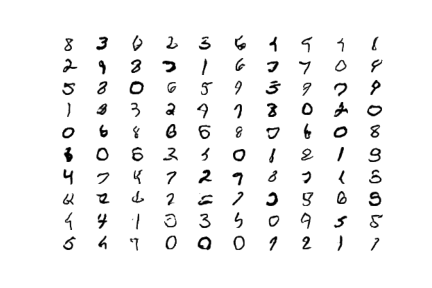 8 3 6 2 5 6 1 9 1 1
2 9 8 7 1 6 7 7 0 9
5 8 0 6 5 9 5 9 7 9
1 8 3 2 9 7 8 0 2 0
0 6 8 6 6 8 7 6 0 8
8 0 6 3 1 0 1 2 1 9
4 7 4 7 2 7 8 7 1 5
2 2 2 7 8 6 9
4 4 1 0 3 5 0 9 5 8
5 4 9 0 0 0 9 2 1 7